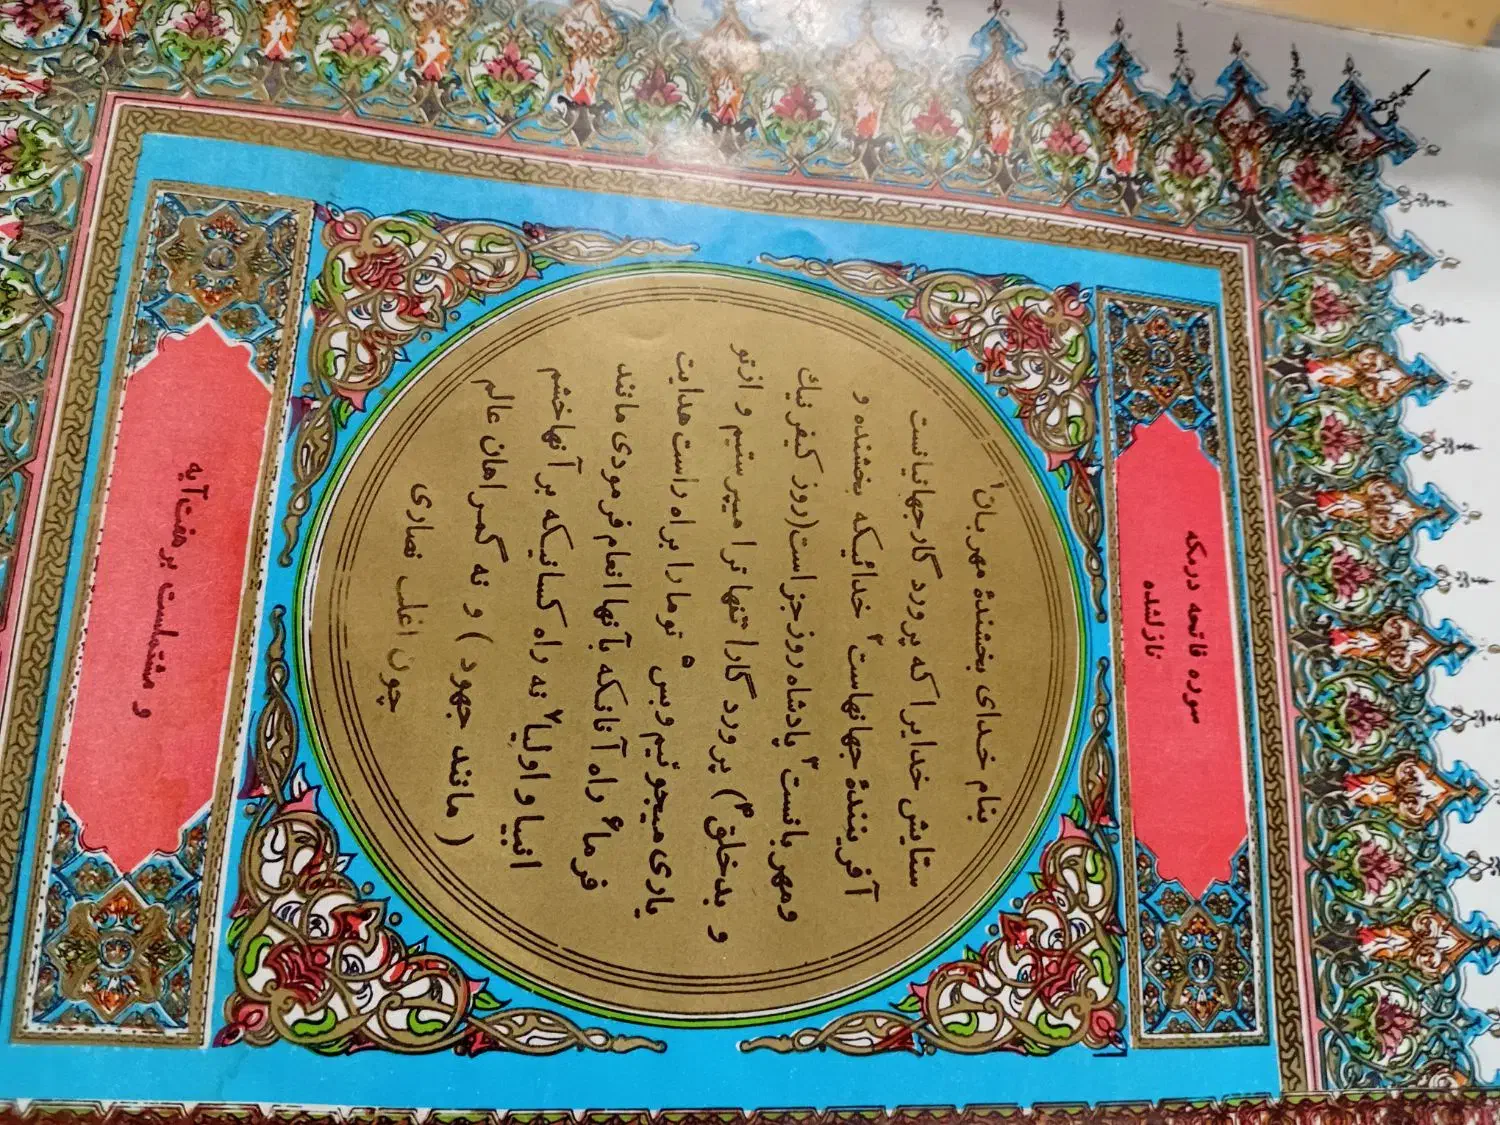 سوره فاتحه در مکه
نازلشده
بنام خدای بخشندهٔ مهربان۱
ستایش خدایرا که پروردگار جهانیانست
آفرینندهٔ جهانهاست۲ خدائیکه بخشنده و
ومهربانست۳ پادشاه روز جزاست(روز کیفر نیك
و بدخلق۴) پروردگارا تنها ترا میپرستیم و از تو
یاری میجوئیم وبس۵ تو ما را براه راست هدایت
فرما۶ راه آنانکه بآنها انعام فرمودی مانند
انبیا و اولیا۷ نه راه کسانیکه بر آنها خشم
(مانند جهود) و نه گمراهان عالم
چون اغلب نصاری
و مشتملست بر هفت آیه